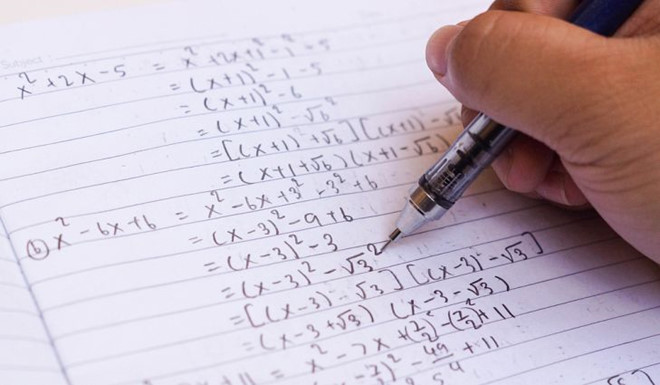 Subject
x² + 2x - 5 = x² + 2x + 1² - 1² - 5
= (x+1)² - 1 - 5
= (x+1)² - 6
= (x+1)² - √6²
= [(x+1) + √6] [(x+1) - √6
= (x+1+√6) (x+1-√6)
(b) x² - 6x + 6 = x² - 6x + 3² - 3² + 6
= (x-3)² - 9 + 6
= (x-3)² - 3
= (x-3)² - √3²
= [(x-3) - √3] [(x-3) - √3]
= (x-3+√3) (x-3-√3)
= x² - 7x + (7/2)² - (7/2)² + 11
)² - 49/4 + 11